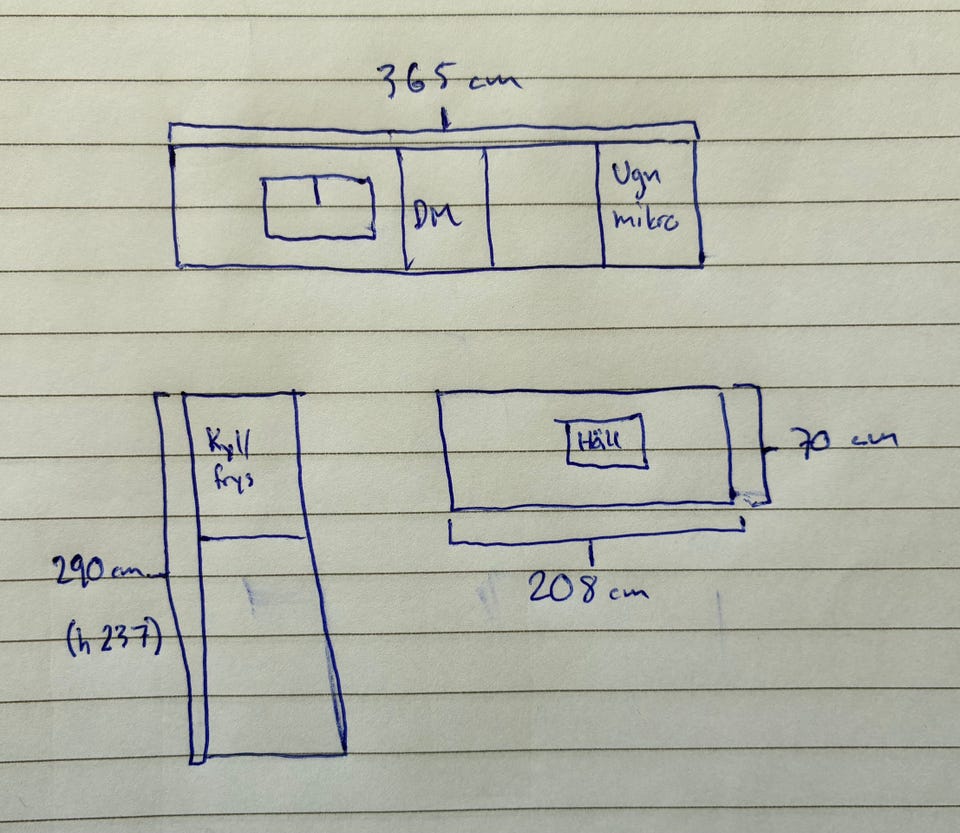 365 cm
DM
Ugn
mikro
Kyl/
frys
Häll
70 cm
290 cm
(h 237)
208 cm